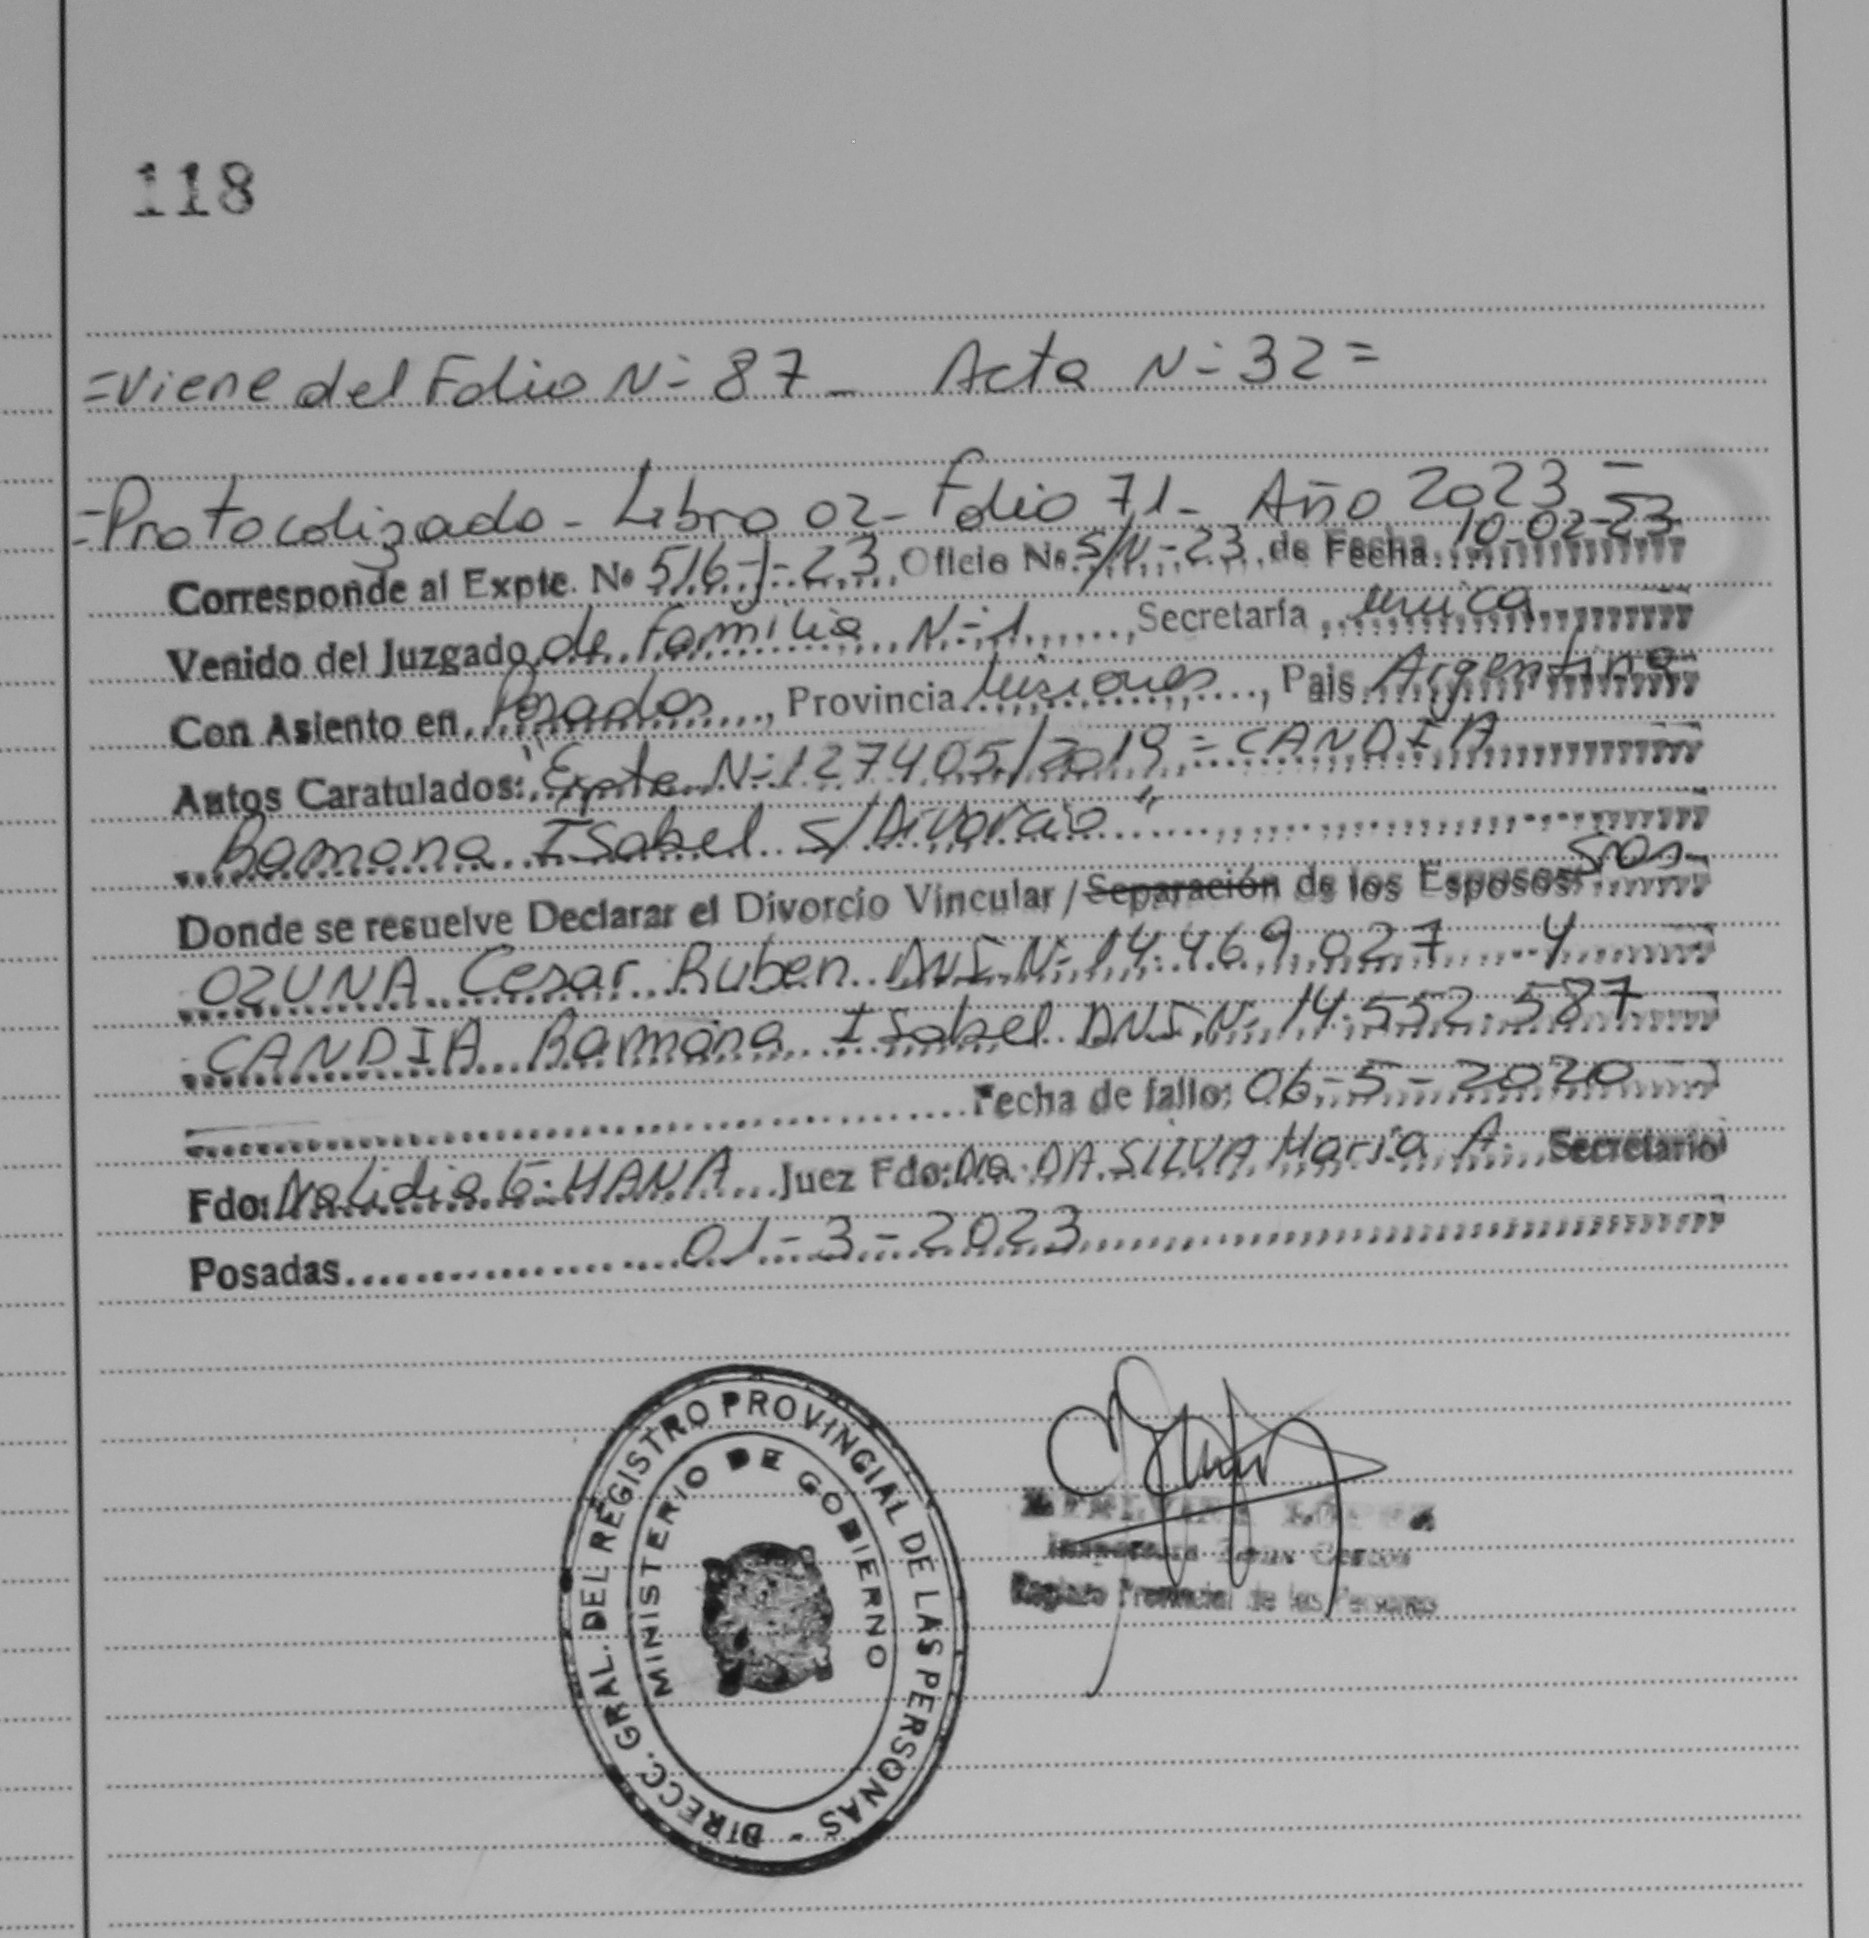 118
=Viene del Folio N- 87 - Acta N- 32=
=Protocolizado - Libro 02 - Folio 71 - Año 2023 =
Corresponde al Expte. Nº 516-J-23 Oficio Nº S/N-23 de Fecha 10-02-23
Venido del Juzgado de Familia N-1, Secretaría única
Con Asiento en Posadas, Provincia Misiones, País Argentina
Autos Caratulados: "Expte N- 127405/2019 = CANDIA
Ramona Isabel S/Divorcio"
Donde se resuelve Declarar el Divorcio Vincular / Separación de los Esposos: Sres.
OZUNA Cesar Ruben DNI N- 14.469.027 y
CANDIA Ramona Isabel DNI N- 14.552.587
Fecha de fallo: 06-5-2020
Fdo: G. Juez Fdo: Dra. DA SILVA Maria A. Secretario
Posadas 01-3-2023
DIRECC. GRAL. DEL REGISTRO PROVINCIAL DE LAS PERSONAS -
MINISTERIO DE GOBIERNO
Registro Provincial de las Personas